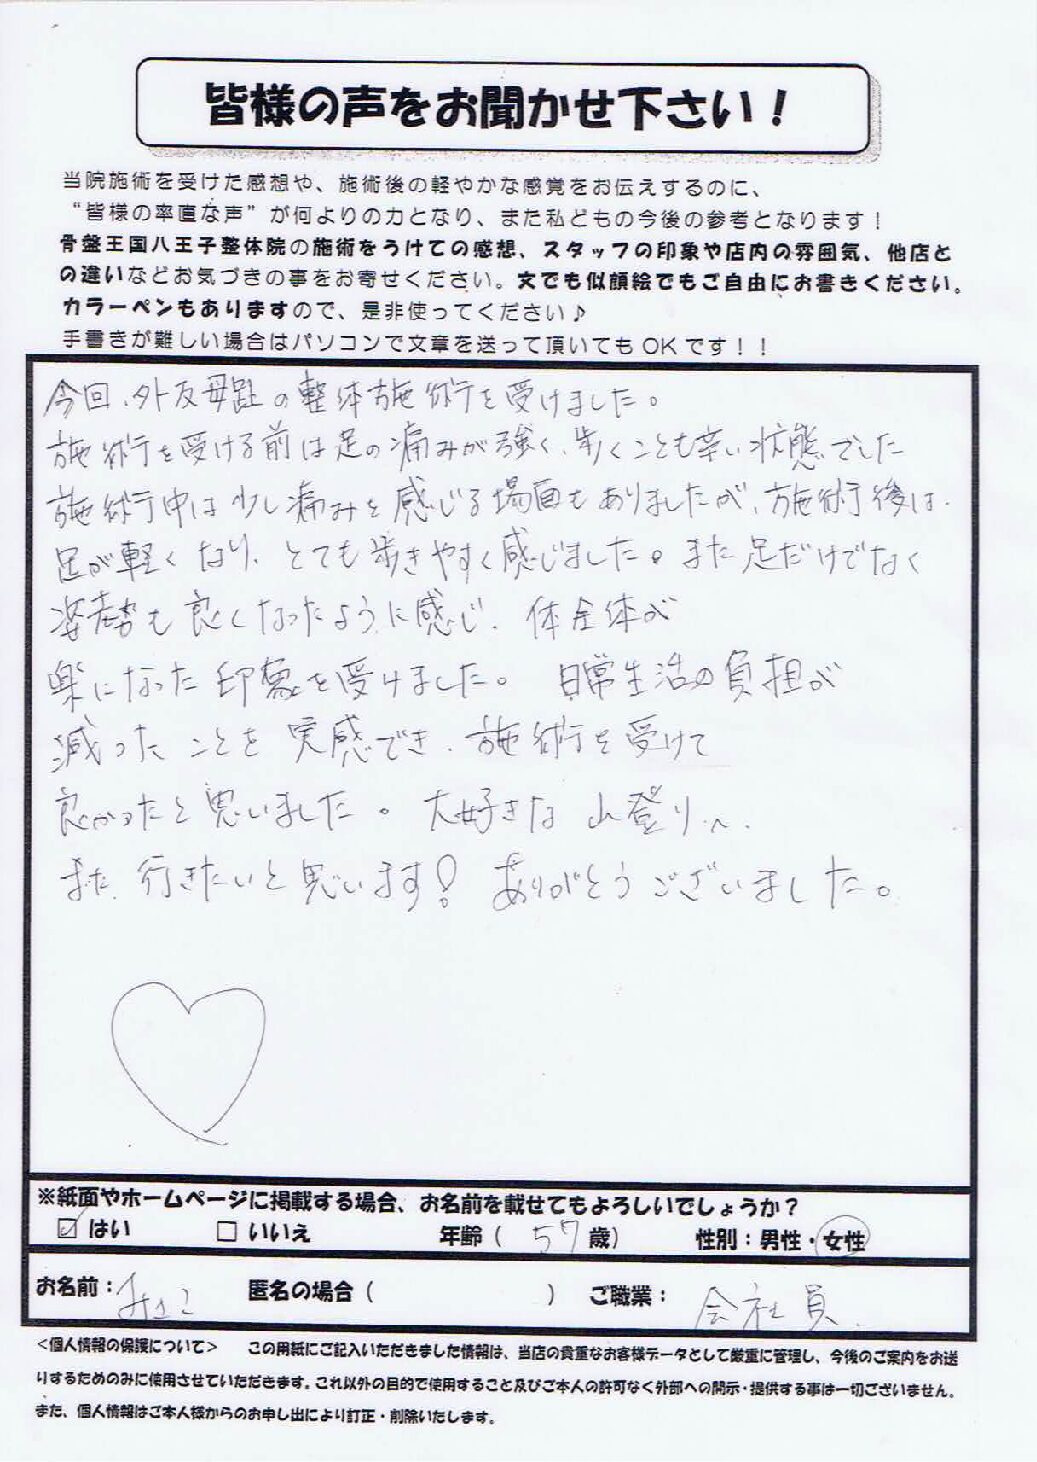 皆様の声をお聞かせ下さい！
当院施術を受けた感想や、施術後の軽やかな感覚をお伝えするのに、
“皆様の率直な声”が何よりの力となり、また私どもの今後の参考となります！
骨盤王国八王子整体院の施術をうけての感想、スタッフの印象や店内の雰囲気、他店と
の違いなどお気づきの事をお寄せください。文でも似顔絵でもご自由にお書きください。
カラーペンもありますので、是非使ってください♪
手書きが難しい場合はパソコンで文章を送って頂いてもOKです！！
今回、外反母趾の整体施術を受けました。
施術を受ける前は足の痛みが強く、歩くことも辛い状態でした
施術中は少し痛みを感じる場面もありましたが、施術後は、
足が軽くなり、とても歩きやすく感じました。また足だけでなく
姿勢も良くなったように感じ、体全体が
楽になった印象を受けました。日常生活の負担が
減ったことを実感でき、施術を受けて
良かったと思いました。大好きな山登りへ、
また、行きたいと思います！ありがとうございました。
※紙面やホームページに掲載する場合、お名前を載せてもよろしいでしょうか？
☑はい □いいえ 年齢（57歳） 性別：男性・女性
お名前： 匿名の場合（ ） ご職業：会社員
＜個人情報の保護について＞ この用紙にご記入いただきました情報は、当店の貴重なお客様データとして厳重に管理し、今後のご案内をお送
りするためのみに使用させていただきます。これ以外の目的で使用すること及びご本人の許可なく外部への開示・提供する事は一切ございません。
また、個人情報はご本人様からのお申し出により訂正・削除いたします。